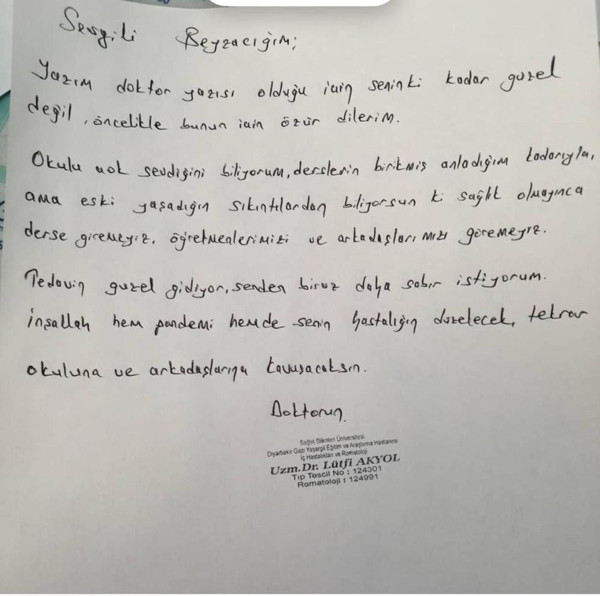 Sevgili Beyzacığım;
Yazım doktor yazısı olduğu için seninki kadar guzel
değil, öncelikle bunun için özür dilerim.
Okulu çok sevdiğini biliyorum, derslerin birikmiş anladığım kadarıyla,
ama eski yaşadığın sıkıntılardan biliyorsun ki sağlık olmayınca
derse giremeyiz, öğretmenlerimizi ve arkadaşlarımızı göremeyiz.
Tedavin guzel gidiyor, senden biraz daha sabır istiyorum.
İnşallah hem pandemi hemde senin hastalığın düzelecek, tekrar
okuluna ve arkadaşlarına kavuşacaksın.
Doktorun.
Sağlık Bilimleri Üniversitesi
Diyarbakır Gazi Yaşargil Eğitim ve Araştırma Hastanesi
İç Hastalıkları ve Romatoloji
Uzm.Dr. Lütfi AKYOL
Tıp Tescil No : 124301
Romatoloji : 124991